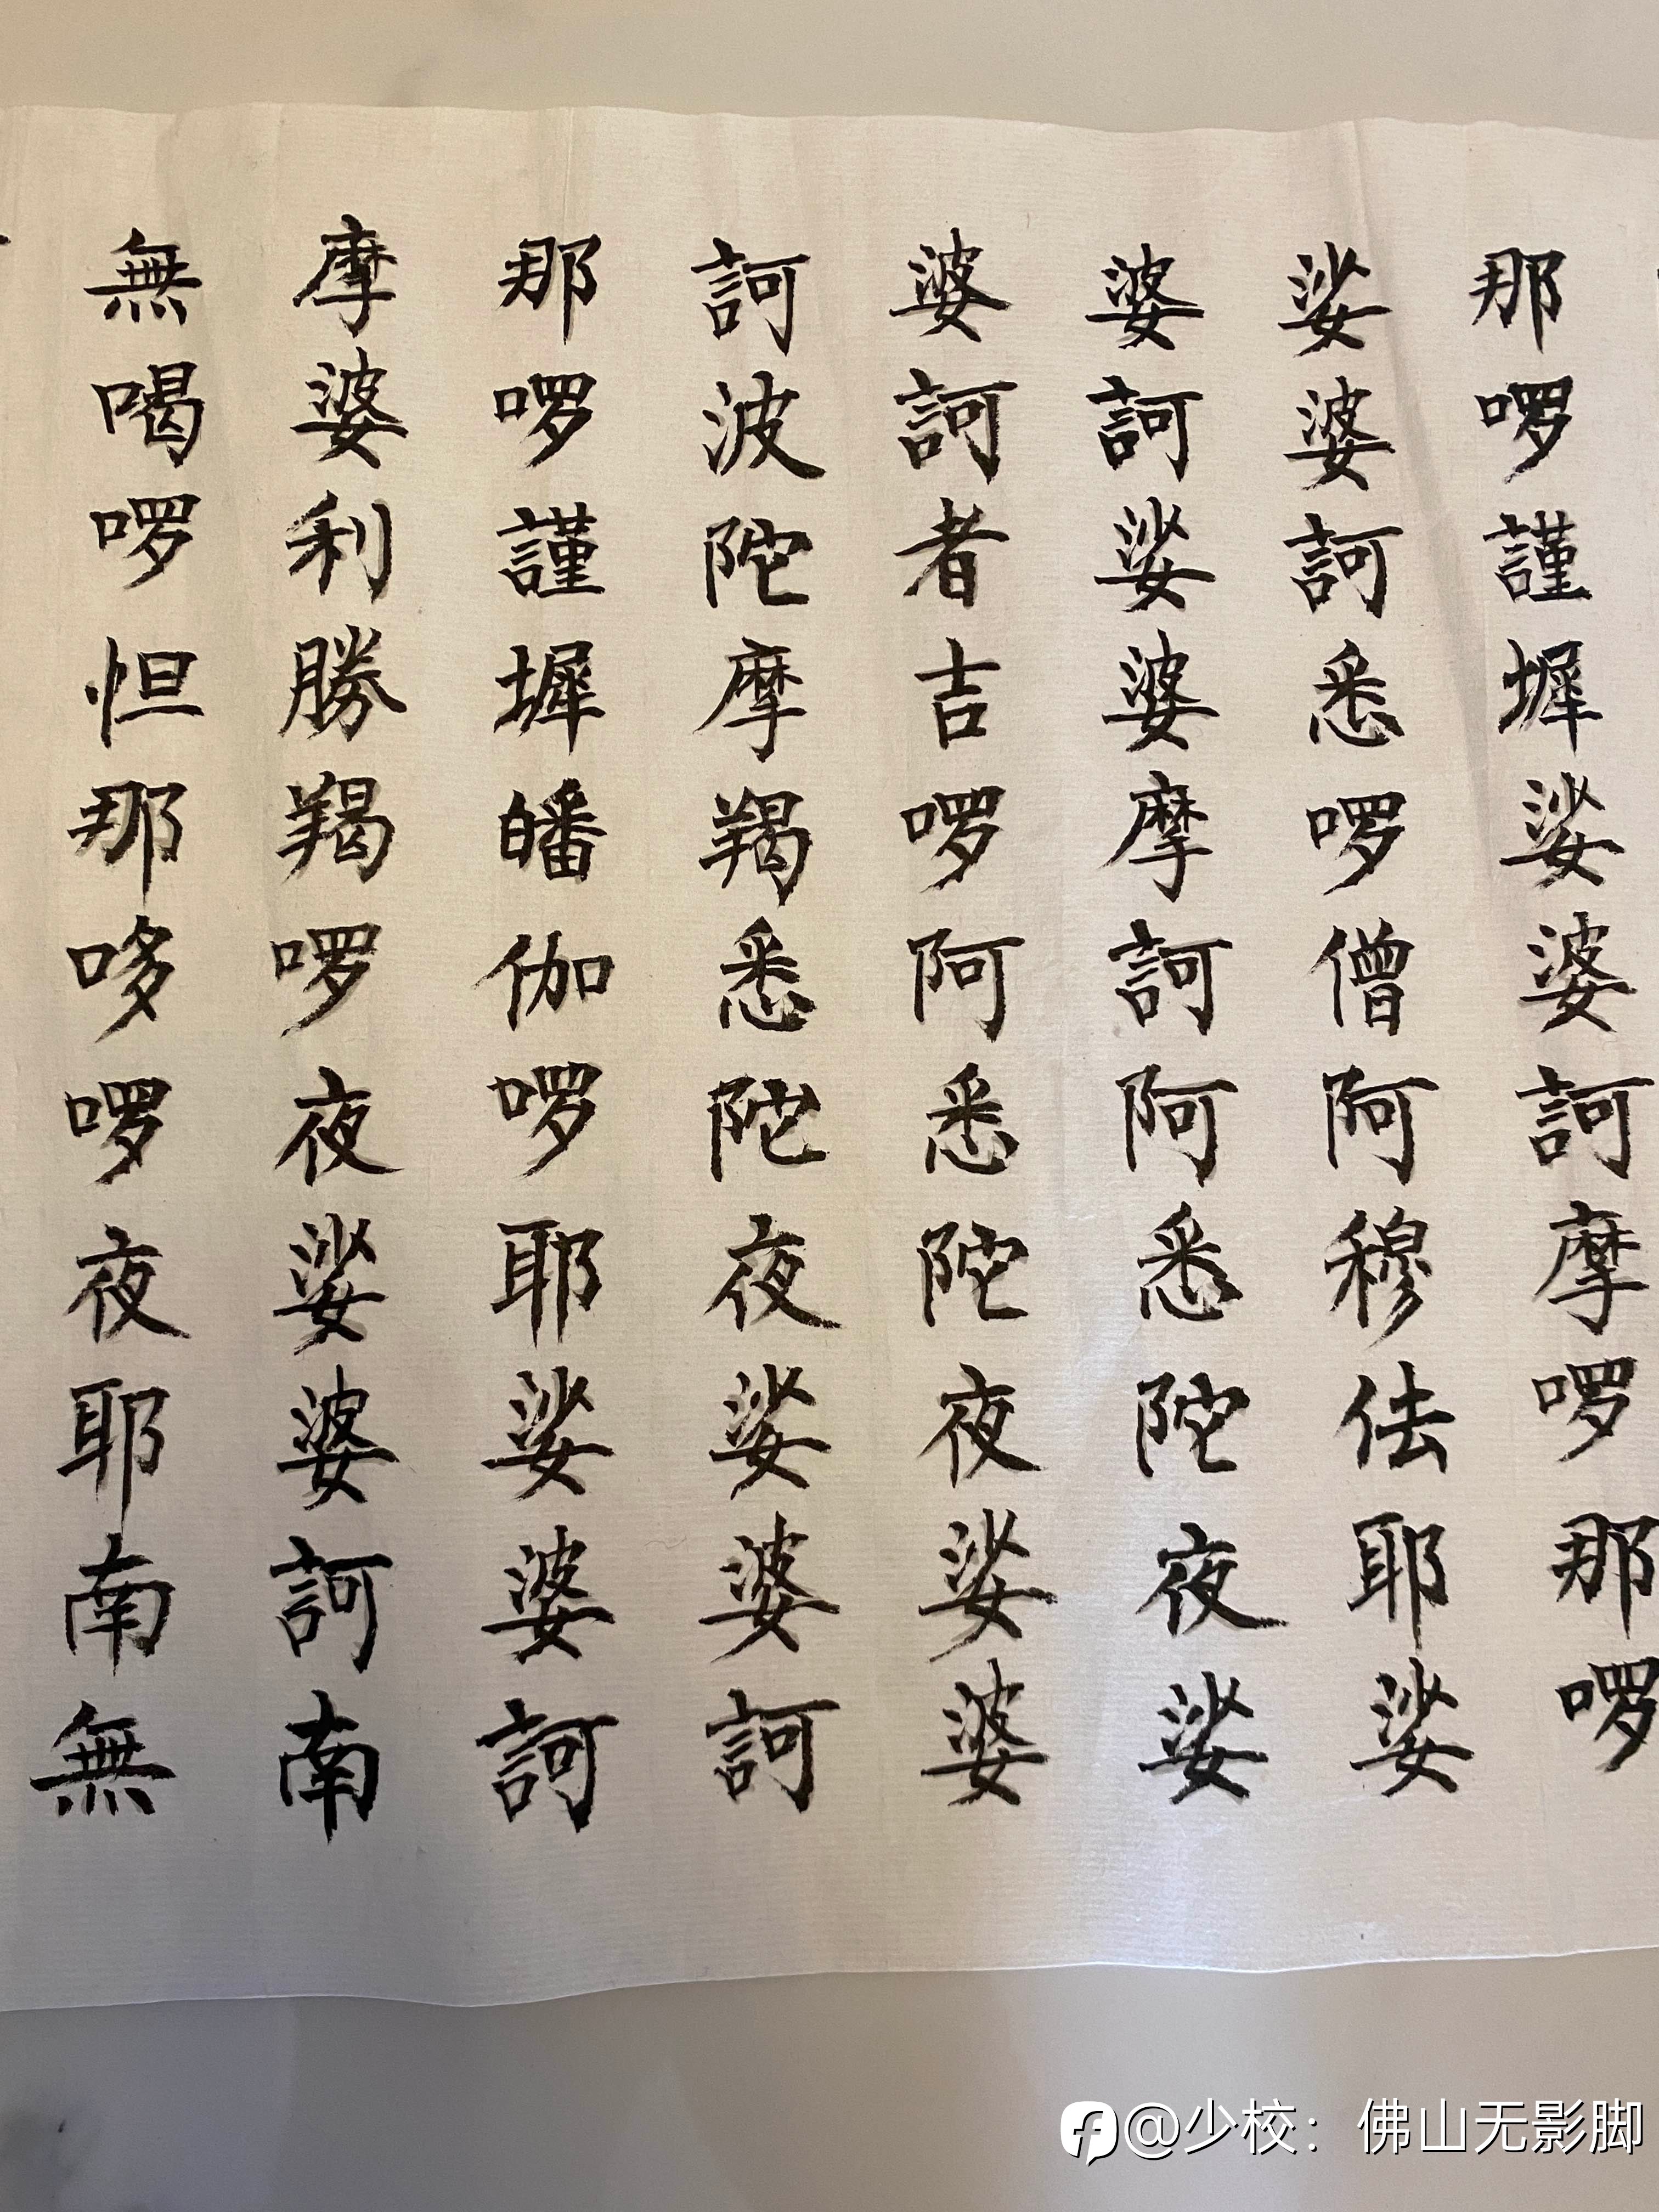 那啰謹墀娑婆訶摩啰那啰
娑婆訶悉啰僧阿穆佉耶娑
婆訶娑婆摩訶阿悉陀夜娑
婆訶者吉啰阿悉陀夜娑婆
訶波陀摩羯悉陀夜娑婆訶
那啰謹墀皤伽啰耶娑婆訶
摩婆利勝羯啰夜娑婆訶南
無喝啰怛那哆啰夜耶南無
@少校：佛山无影脚